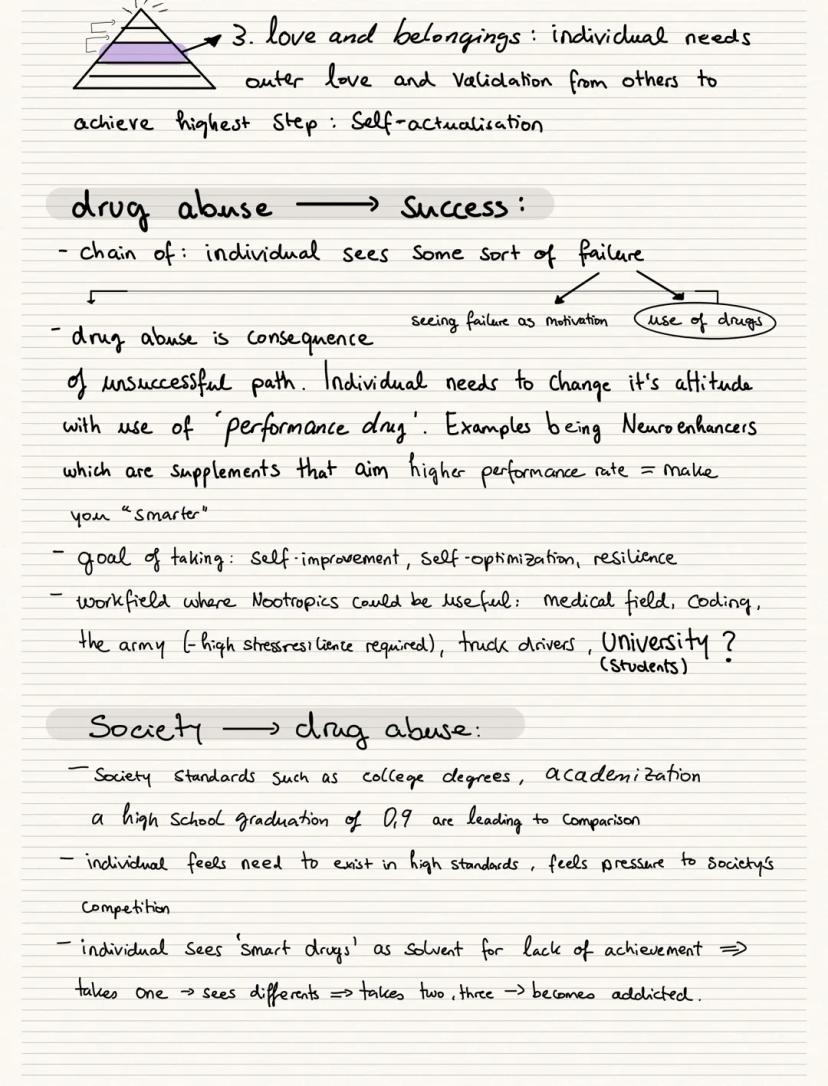 3. love and belongings : individual needs
outer love and Validation from others to
achieve highest Step : Self-actualisation
drug abuse ⟶ Success :
- chain of : individual sees some sort of failure
seeing failure as motivation use of drugs
- drug abuse is consequence
of unsuccessful path. Individual needs to change it's attitude
with use of 'performance drug'. Examples being Neuroenhancers
which are supplements that aim higher performance rate = make
you "smarter"
- goal of taking : self-improvement, self-optimization, resilience
- workfield where Nootropics could be useful : medical field, coding,
the army (-high stressresilience required), truck drivers, University ?
(Students)
Society ⟶ drug abuse :
- Society standards such as college degrees, academization
a high school graduation of 0,9 are leading to comparison
- individual feels need to exist in high standards, feels pressure to society's
competition
- individual sees 'smart drugs' as solvent for lack of achievement ⇒
takes one → sees differents ⇒ takes two, three → becomes addicted.